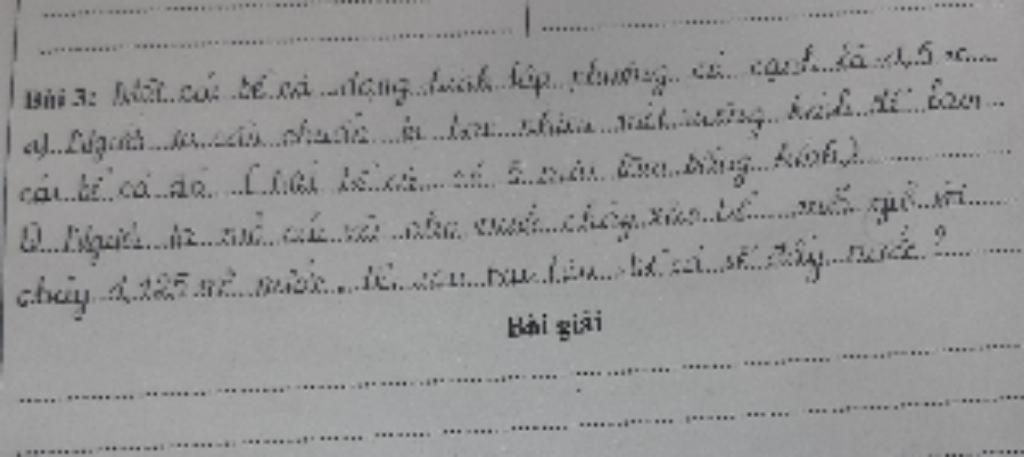 Bài 3: Một cái bể cá dạng hình lập phương có cạnh là 1,5 m
a) Người ta cần chuẩn bị bao nhiêu mét vuông kính để làm
cái bể cá đó ( bể cá có 5 mặt làm bằng kính )
b) Người ta mở cái vòi cho nước chảy vào bể mỗi giờ vòi
chảy 1,125 m³ nước. sau bao lâu bể cá sẽ đầy nước ?
Bài giải